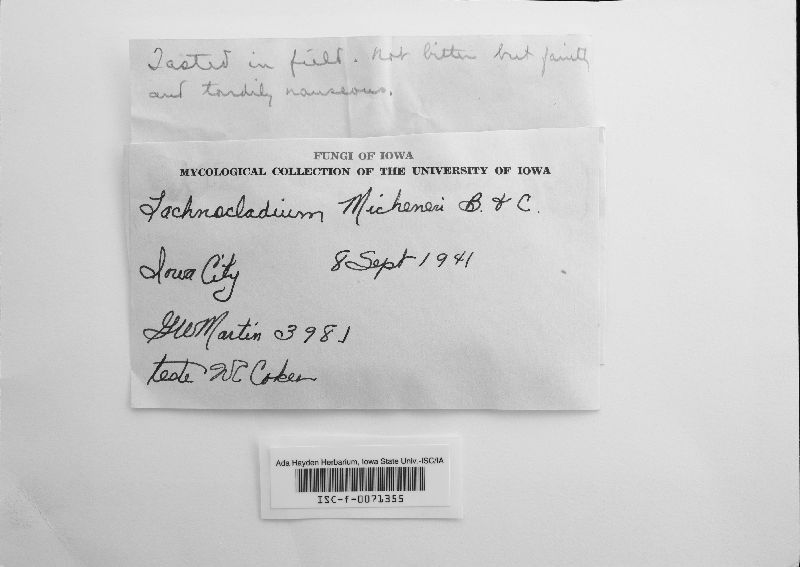 Tasted in field. Not bitter but faintly
and tardily nauseous.
FUNGI OF IOWA
MYCOLOGICAL COLLECTION OF THE UNIVERSITY OF IOWA
Lachnocladium Micheneri B. & C.
Iowa City 8 Sept 1941
GWMartin 3981
teste WC Coker
Ada Hayden Herbarium, Iowa State Univ.-ISC/IA
ISC-f-0071355